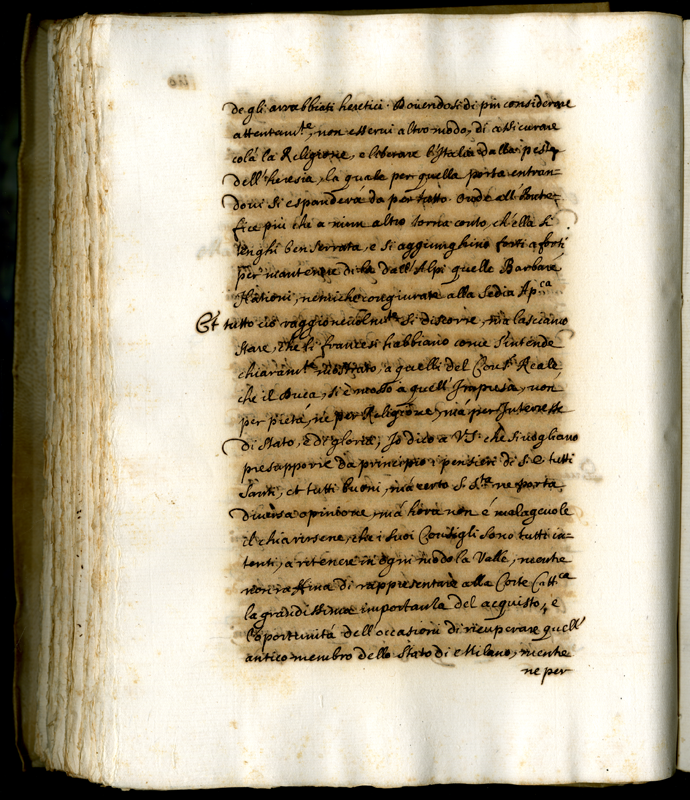 degli arrabbiati heretici. Dovendosi di più considerare
attentam.te, non esservi altro modo, di assicurare
colà la Religione, e liberare l'Italia dalla peste
dell'heresia, la quale per quella porta entran-
dovi si espanderà da per tutto. Onde al Ponte-
fice più che a niun altro torna conto, ch'ella si
tenghi ben serrata, e si aggiunghino forti a forti
per mantenere di là dall'Alpi quelle Barbare
Nationi, nemiche congiurate alla Sedia Ap.ca
Et tutto ciò raggionevolm.te si discorre, mà lasciamo
stare, che li francesi habbiano come s'intende
chiaram.te mostrato, a quelli del Cons.o Reale,
che il Duca, si è mosso a quell'Impresa, non
per pietà, nè per Religione, mà per Interesse
di Stato, e di gloria, Io dico a V.S. che si vogliano
presupporre da principio i pensieri di S.E. tutti
santi, et tutti buoni, mà certo S. S.tà ne porta
diversa opinione, mà hora non è malagevole
il chiarirsene, che i suoi Consigli sono tutti in-
tenti, a ritenere in ogni modo la Valle, mentre
non di rappresentare alla Corte Catt.ca
la grandissima importanza del acquisto, e
l'oportunità dell'occasioni di ricuperare quell'
antico membro dello Stato di Milano, mentre
ne per